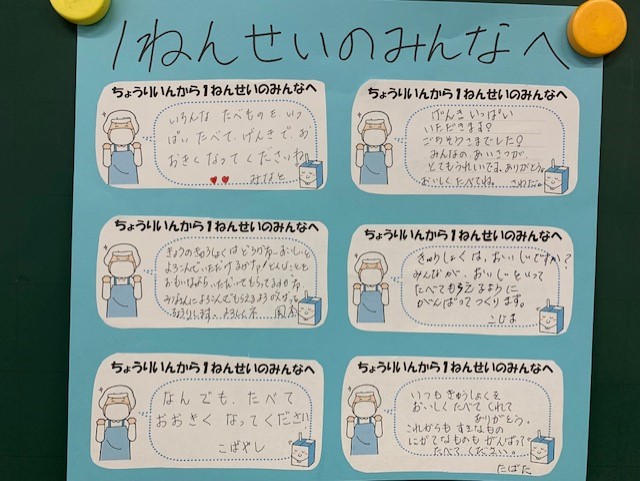 1ねんせいのみんなへ
ちょうりいんから1ねんせいのみんなへ
いろんな たべものを、いっ
ぱい たべて、げんきで、お
おきくなってくださいね
みなと
ちょうりいんから1ねんせいのみんなへ
げんきいっぱい
いただきます!
ごちそうさまでした!
みんなの、あいさつが、
とてもうれしいです。ありがとう。
おいしくたべてね。 さわだ。
ちょうりいんから1ねんせいのみんなへ
きょうのきゅうしょくは どうかなー おいしいと
よろこんでいただけるかな
おもいながら
ちょうりいんから1ねんせいのみんなへ
きゅうしょくは、おいしいですか?
みんなが、おいしいといって
たべてもらえるように
がんばってつくります。
こじま
ちょうりいんから1ねんせいのみんなへ
なんでも、たべて
おおきく なってください
こばやし
ちょうりいんから1ねんせいのみんなへ
いつも きゅうしょくを
おいしく たべて くれて
ありがとう。
これからも すきなもの
にがてなものも がんばって
たべて ください。
たばた